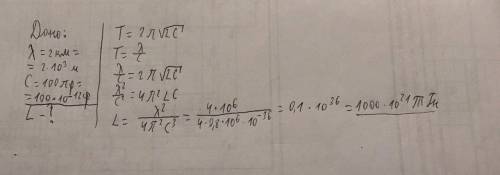 Дано:
λ = 2 км =
= 2·10³ м
C = 100 пф =
= 100·10⁻¹² ф
L - ?
T = 2π√LC
T = λ/c
λ/c = 2π√LC
λ²/c² = 4π²LC
L = λ²/4π²C³ = 4·10⁶/4·9,8·10⁶·10⁻³⁶ = 0,1·10³⁶ = 1000·10²¹ Т Гн